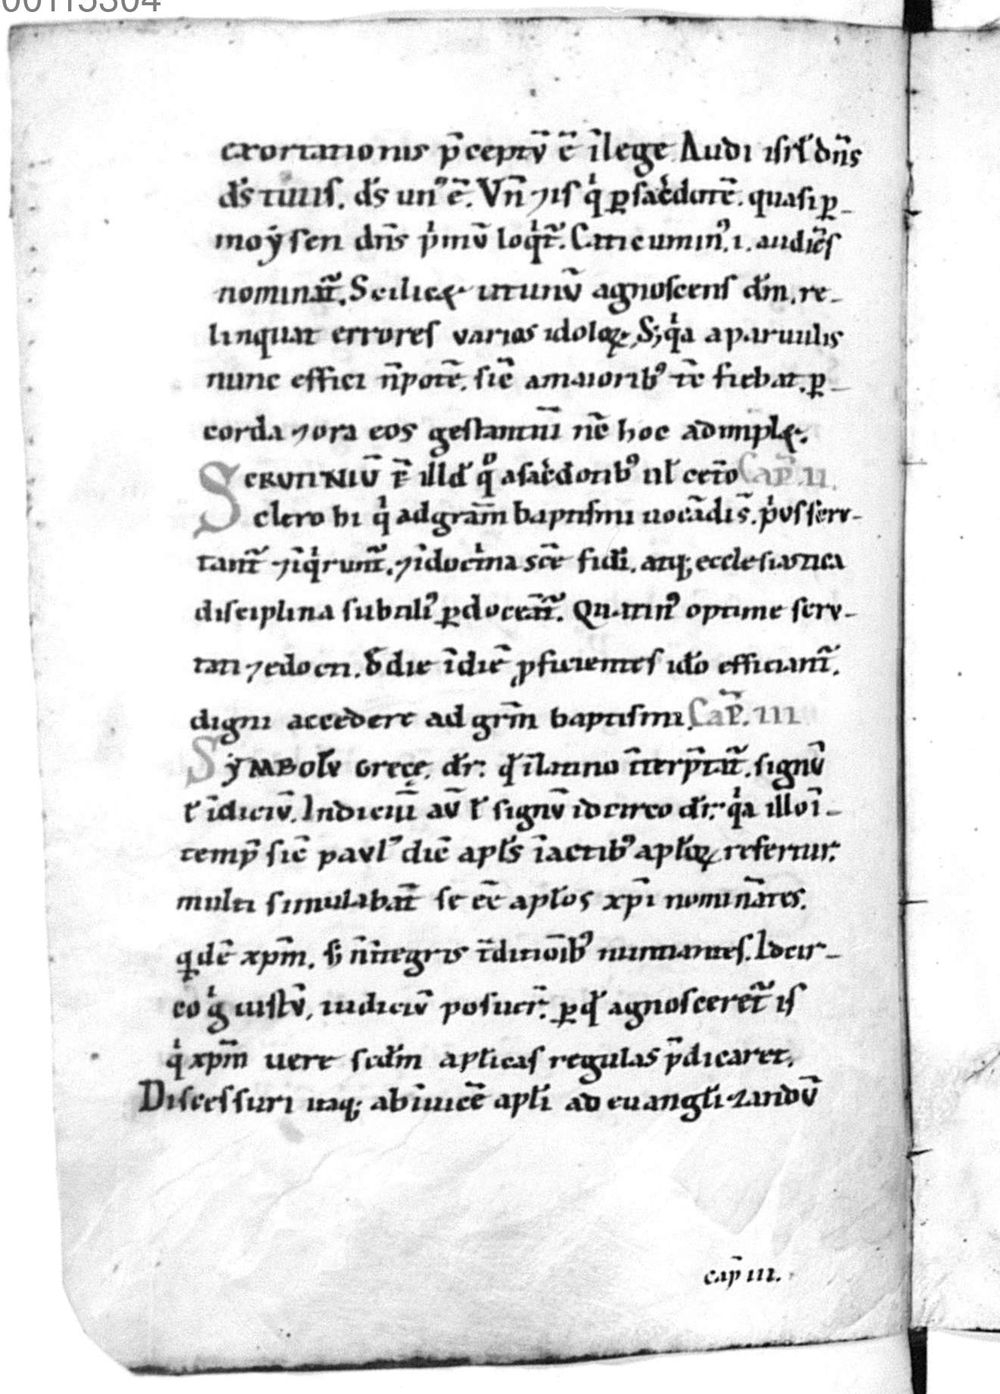 00115304
exortationis p̄ceptū ē īlege Audi isrl̄ dn̄s
ds̄ tuus. ds̄ un᾿ ē. Vn̄ ⁊is qͥ ꝑ sac̄dotē. quasi ꝑ-
moysen dn̄s pͥmū loqͥt᷑. Catecumin᾿. i. audiēs
nominat᷑. Scilicꝫ ut unū agnoscens dm̄. re-
linquat errores varios idoloꝝ. Sꝫ qͥa a paruulis
nunc effici n̄ potē. sic̄ a maiorib᾿ tc̄ fiebat. ꝑ-
corda ⁊ ora eos gestantiū nc̄ hoc adimplꝫ.
SCRUTINIŪ ē illd̄ qͦ a sac̄dotib᾿ ul̄ cet̄o Cap̄. II.
clero hi qͥ ad gram̄ baptismi uocādi s̄. pͥus scru-
tant᷑ ⁊ īqͥrunt᷑. ⁊ ī doct̄ina sc̄e fidi. atqꝫ ecclesiastica
disciplina subtili᾿ ꝑdocent᷑. Quatin᾿ optime scru-
tati ⁊ edocti. de die ī diē ꝓficientes ido᷑ efficiant᷑.
digni accedere ad grm̄ baptismi. Cap̄. III
SYMBOLŪ Grece. dr̄. qd̄ ī latino īterp̄tat᷑. signū
ł īdiciū. Indiciū aū ł signū idcirco dr̄. qͥa illo ī-
temp̄ sic̄ paul᾿ dic̄ apls̄ ī actib᾿ apl̄oꝝ refertur.
multi simulabāt se eē apl̄os xp̄i nominātes.
qͥdē xpm̄. s̄ n̄ ītegris t̄ditiōib᾿ nuntiantes. Idcir-
co gͥ iustū, iudiciū posuer̄. ꝑ qd̄ agnosceret᷑ is
qͥ xpm̄ uere scdm̄ apl̄icas regulas p̄dicaret.
Discessuri itaqꝫ ab inuicē apl̄i ad euangl̄izandū
cap̄ III.